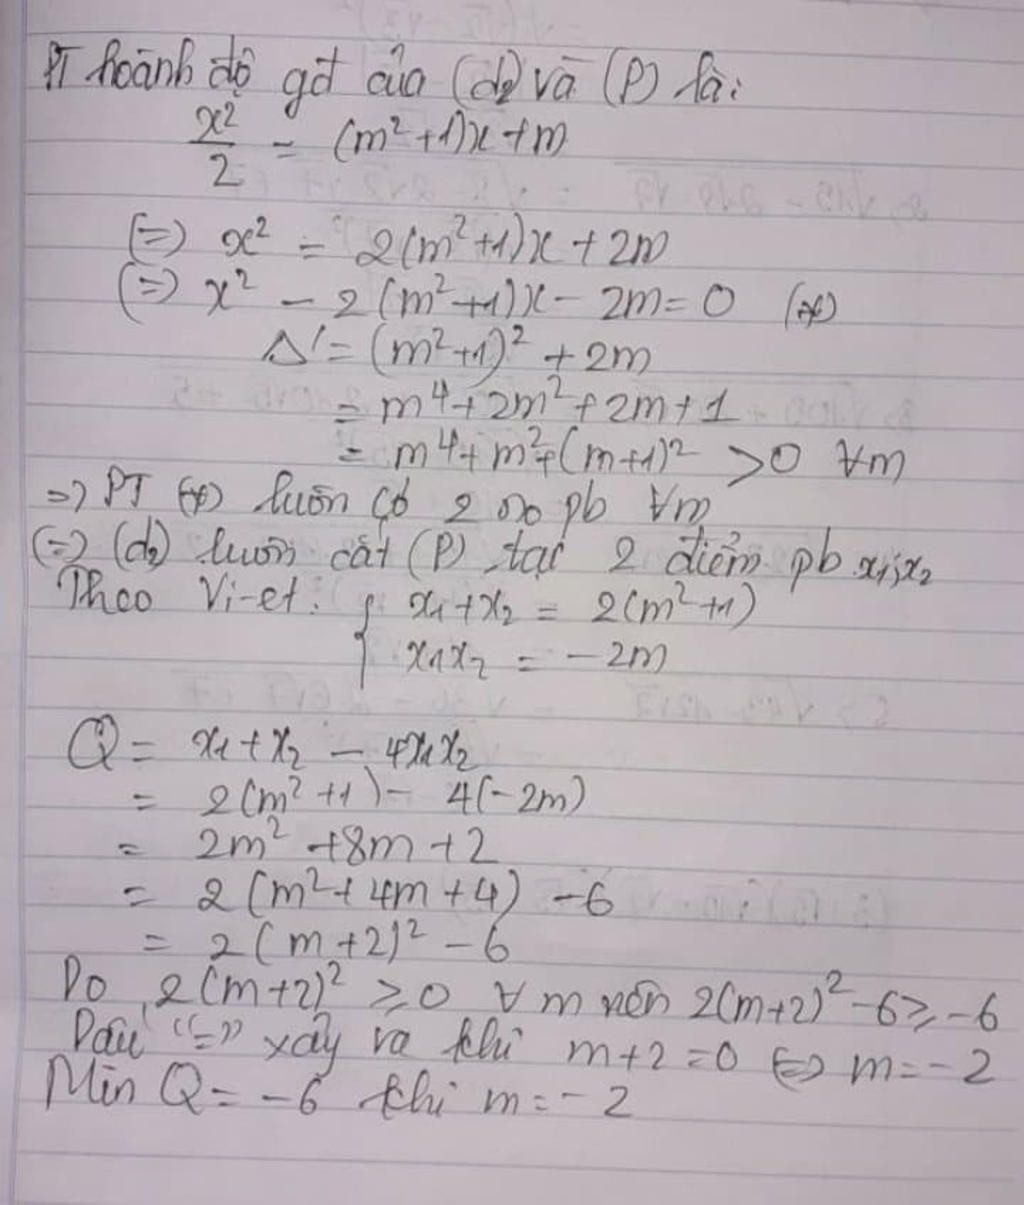 PT hoành độ gđ của (d2) và (P) là:
x²/2 = (m²+1)x+m
(=) x² = 2(m²+1)x + 2m
(=) x² - 2(m²+1)x - 2m = 0 (*)
Δ' = (m²+1)² + 2m
= m⁴ + 2m² + 2m + 1
= m⁴ + m² + (m+1)² >0 ∀m
=> PT (*) luôn có 2 no pb ∀m
(=) (d2) luôn cắt (P) tại 2 điểm pb x1; x2
Theo Vi-et: { x1+x2 = 2(m²+1)
x1x2 = -2m
Q = x1+x2 - 4x1x2
= 2(m²+1) - 4(-2m)
= 2m² + 8m + 2
= 2(m² + 4m + 4) - 6
= 2(m+2)² - 6
Do 2(m+2)² ≥ 0 ∀m nên 2(m+2)² - 6 ≥ -6
Dấu "=" xảy ra khi m+2 = 0 <=> m = -2
Min Q = -6 khi m = -2